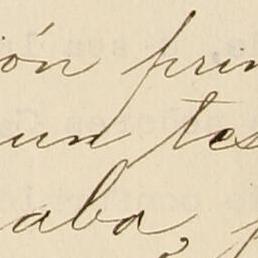 ión prin
un tes
aba,